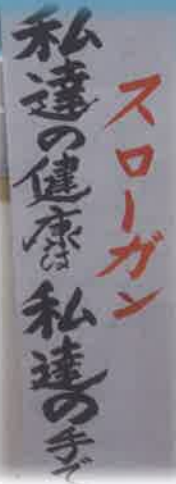 スローガン
私達の健康は私達の手で